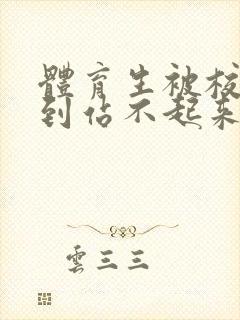 體育生被校
到站不起來
雲三三